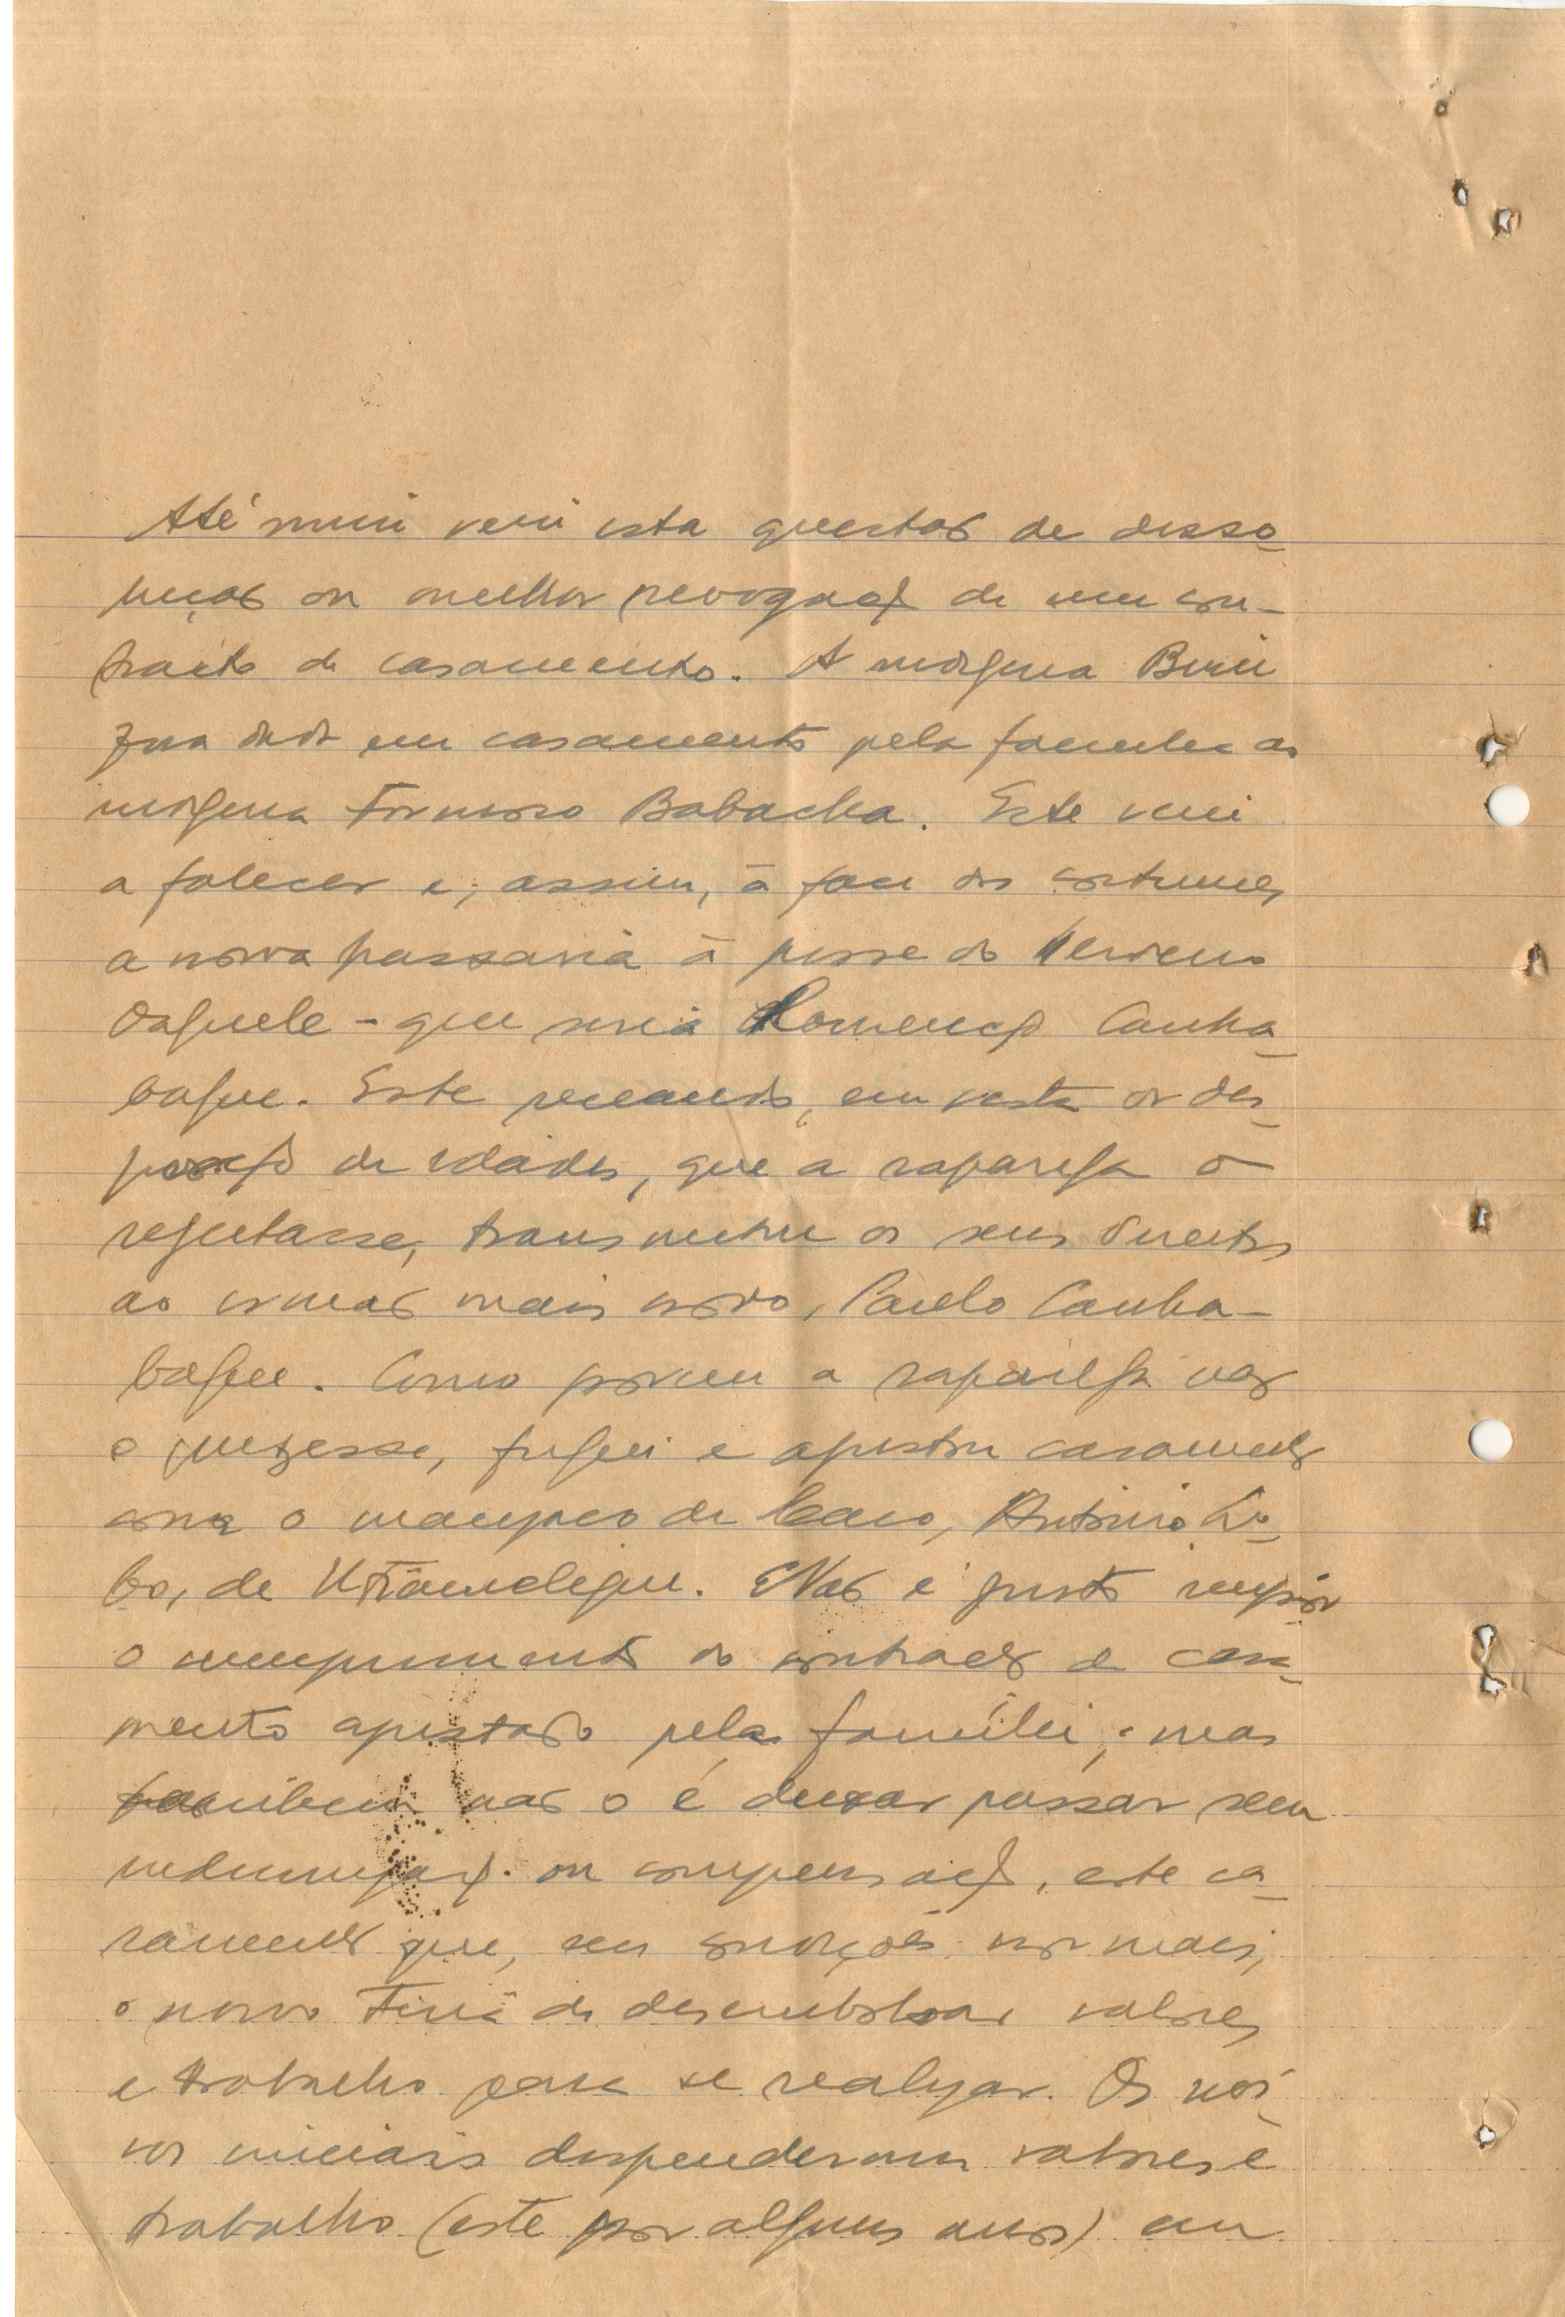 Até mim veio esta questão de disso-
lução ou melhor revogação de um con-
tracto de casamento. A indígena Bini
fora dada em casamento pela familia ao
indígena Formoso Babacha. Este veio
a falecer e, assim, à face dos costumes,
a noiva passaria à posse do herdeiro
daquele - que seria Lourenço Canha-
baque. Este receando, em vista da des-
porção de idades, que a rapariga o
rejeitasse, transmitiu os seus direitos
ao irmão mais novo, Paulo Canha-
baque. Como porem a rapariga não
o quizesse, fugiu e ajustou casamento
com o mancanha de Caio, António Lo-
bo, de Não é justo impôr
o cumprimento do contracto de casa-
mento ajustado pelas família; mas
tambem não o é deixar passar sem
indemnização ou compensação, este ca-
samento que, em condições normais,
o noivo teria de desembolsar valores
e trabalho para se realizar. Os noi-
vos iniciais despenderam valores e
trabalho (este por alguns anos) em